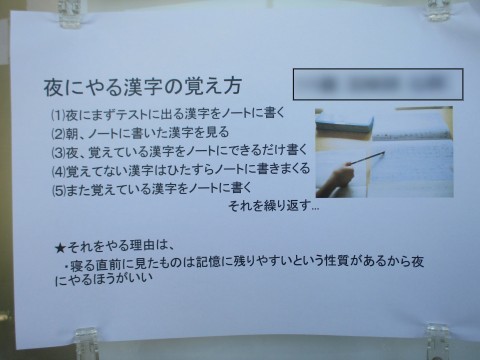 夜にやる漢字の覚え方
⑴夜にまずテストに出る漢字をノートに書く
⑵朝、ノートに書いた漢字を見る
⑶夜、覚えている漢字をノートにできるだけ書く
⑷覚えてない漢字はひたすらノートに書きまくる
⑸また覚えている漢字をノートに書く
それを繰り返す...
★それをやる理由は、
・寝る直前に見たものは記憶に残りやすいという性質があるから夜
にやるほうがいい